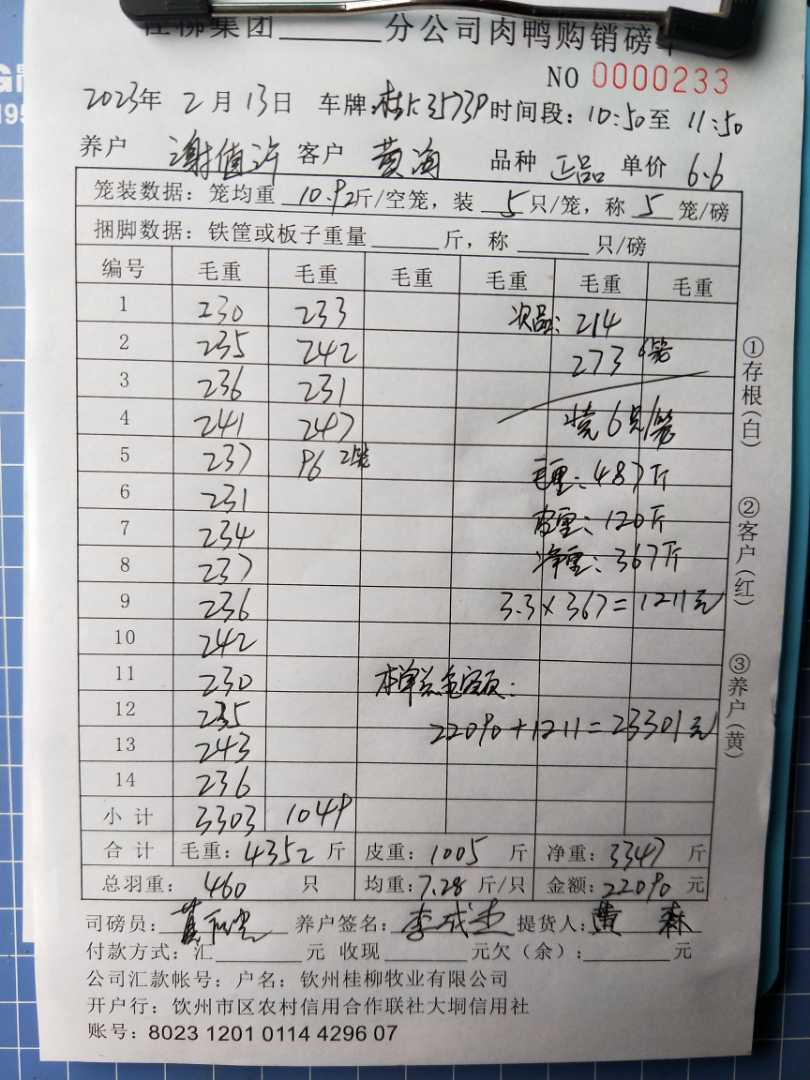 桂柳集团______分公司肉鸭购销磅单
NO 0000233
2023年 2月13日 车牌:桂K3573P 时间段:10:50至 11:50
养户 谢值许 客户 黄海 品种 正品 单价 6.6
笼装数据:笼均重 10.92斤/空笼,装 5 只/笼,称 5 笼/磅
捆脚数据:铁筐或板子重量______斤,称______只/磅
编号 毛重 毛重 毛重 毛重 毛重 毛重
1 230 233 次品: 214
2 235 242 273 6笼
3 236 231
4 241 247 装6只/笼
5 237 96 2笼 毛重:487斤
6 231 皮重:120斤
7 234
8 237 净重:367斤
9 236 3.3×367=1211元
10 242
11 230 本单总金额:
12 235 22090+1211=23301元
13 243
14 236
小计 3303 1049
合计 毛重:4352 斤 皮重:1005 斤 净重:3347 斤
总羽重: 460 只 均重:7.28 斤/只 金额:22090 元
司磅员: 养户签名:李成 提货人:黄 森
付款方式:汇______元 收现______元欠(余):______元
公司汇款帐号:户名:钦州桂柳牧业有限公司
开户行:钦州市区农村信用合作联社大垌信用社
账号:8023 1201 0114 4296 07
①存根(白)
②客户(红)
③养户(黄)